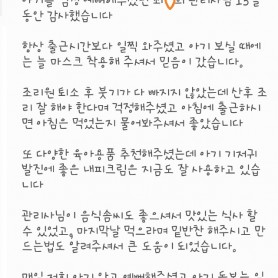 동안 감사했습니다
항상 출근시간보다 일찍 와주셨고 아기 보실 때에
는 늘 마스크 착용해 주셔서 믿음이 갔습니다.
조리원 퇴소 후 붓기가 다 빠지지 않았는데 산후 조
리 잘 해야 한다며 걱정해주셨고 아침에 출근하시
면 아침은 먹었는지 물어봐주셔서 좋았습니다
또 다양한 육아용품 추천해주셨는데 아기 기저귀
발진에 좋은 내피크림은 지금도 잘 사용하고 있습
니다
관리사님이 음식솜씨도 좋으셔서 맛있는 식사 할
수 있었고, 마지막날 먹으라며 밑반찬 해주시고 만
드는법도 알려주셔서 큰 도움이 되었습니다.